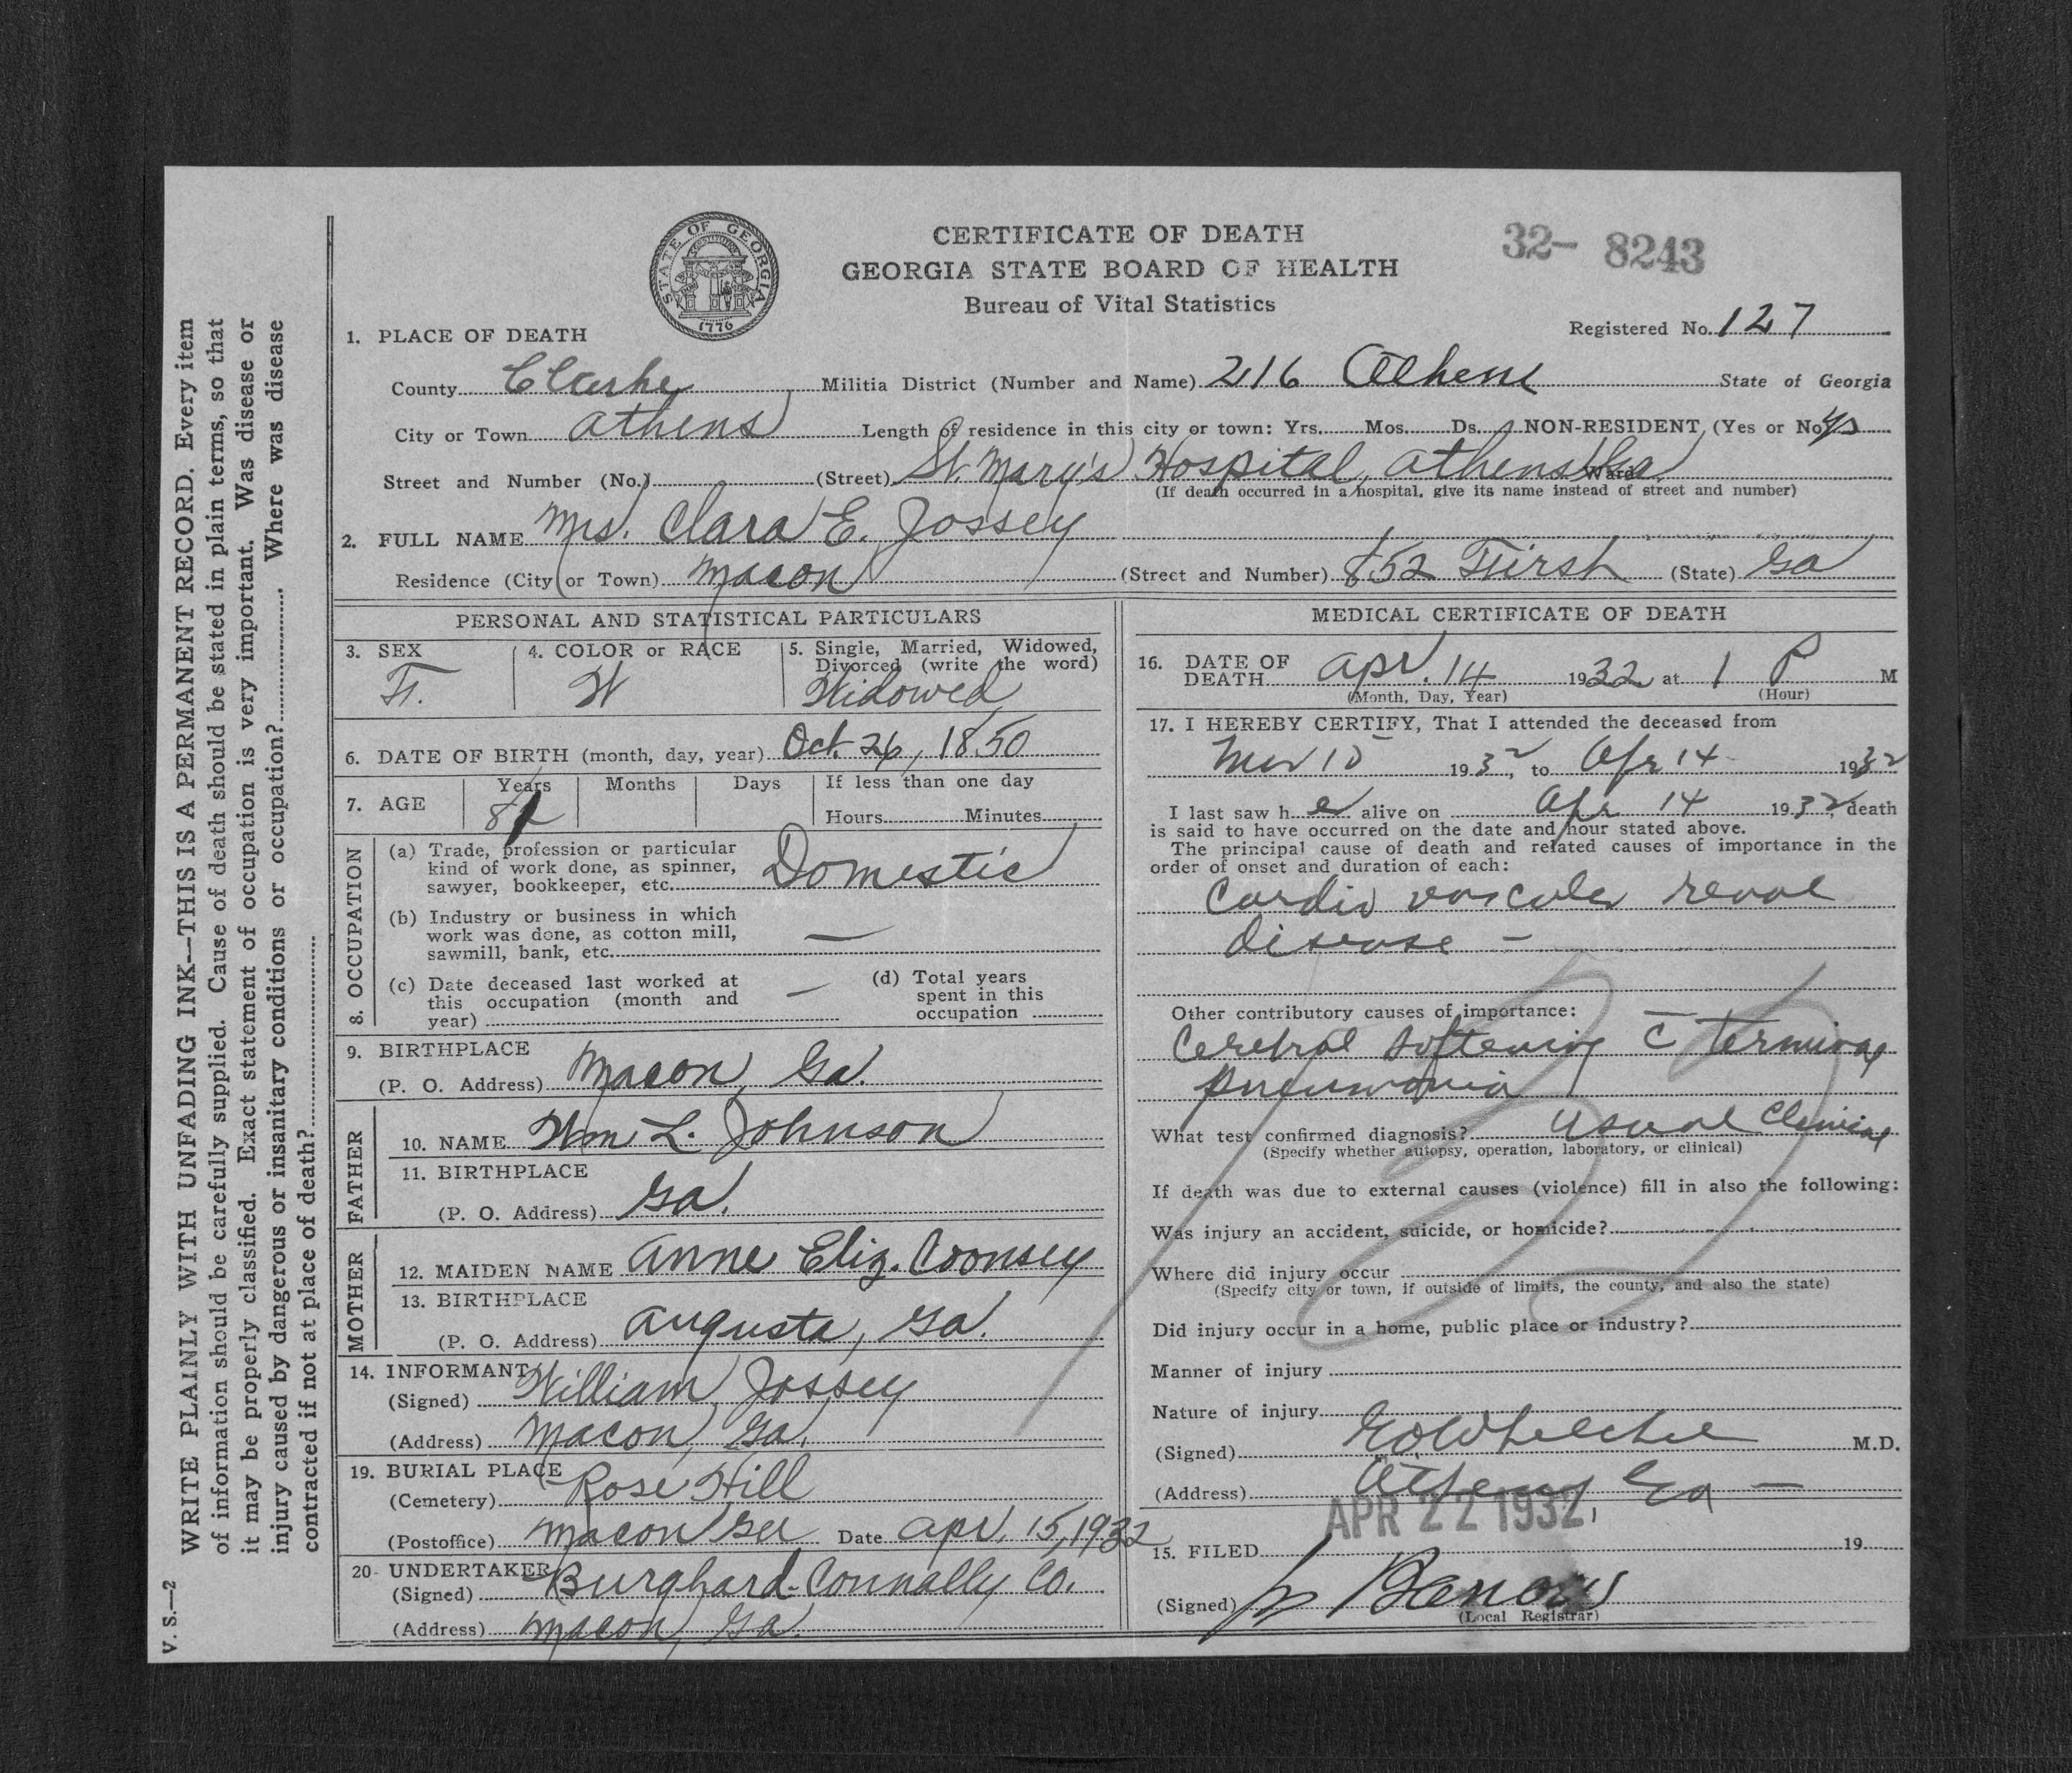 CERTIFICATE OF DEATH
GEORGIA STATE BOARD OF HEALTH
Bureau of Vital Statistics
32- 8243
STATE OF GEORGIA
CONSTITUTION
1776
Registered No. 127
1. PLACE OF DEATH
County Clarke Militia District (Number and Name) 216 Athens State of Georgia
City or Town Athens Length of residence in this city or town: Yrs. Mos. Ds. NON-RESIDENT (Yes or No)
Street and Number (No.) (Street) St. Mary's Hospital, Athens Ga. Ward
(If death occurred in a hospital, give its name instead of street and number)
2. FULL NAME Mrs. Clara E. Jossey
Residence (City or Town) Macon (Street and Number) 852 First (State) Ga
PERSONAL AND STATISTICAL PARTICULARS
3. SEX
F.
4. COLOR or RACE
W
5. Single, Married, Widowed,
Divorced (write the word)
Widowed
6. DATE OF BIRTH (month, day, year) Oct. 26, 1850
7. AGE
Years Months Days If less than one day
81
Hours Minutes
8. OCCUPATION
(a) Trade, profession or particular
kind of work done, as spinner,
sawyer, bookkeeper, etc. Domestic
(b) Industry or business in which
work was done, as cotton mill,
sawmill, bank, etc. —
(c) Date deceased last worked at
this occupation (month and
year) —
(d) Total years
spent in this
occupation
9. BIRTHPLACE
(P. O. Address) Macon, Ga.
FATHER
10. NAME Wm L. Johnson
11. BIRTHPLACE
(P. O. Address) Ga.
MOTHER
12. MAIDEN NAME Anne Eliz. Coonsey
13. BIRTHPLACE
(P. O. Address) Augusta, Ga.
14. INFORMANT
(Signed) William Jossey
(Address) Macon, Ga.
19. BURIAL PLACE
(Cemetery) Rose Hill
(Postoffice) Macon Ga Date Apr. 15, 1932
20- UNDERTAKER
(Signed) Burghard-Connally Co.
(Address) Macon, Ga.
MEDICAL CERTIFICATE OF DEATH
16. DATE OF
DEATH Apr. 14 1932 at 1 P M
(Month, Day, Year) (Hour)
17. I HEREBY CERTIFY, That I attended the deceased from
Mar 15 1932, to Apr 14 1932
I last saw her alive on Apr 14 1932, death
is said to have occurred on the date and hour stated above.
The principal cause of death and related causes of importance in the
order of onset and duration of each:
Cardio vascular renal
disease -
Other contributory causes of importance:
Cerebral softening c̄ terminal
pneumonia
What test confirmed diagnosis? Usual Clinical
(Specify whether autopsy, operation, laboratory, or clinical)
If death was due to external causes (violence) fill in also the following:
Was injury an accident, suicide, or homicide?
Where did injury occur
(Specify city or town, if outside of limits, the county, and also the state)
Did injury occur in a home, public place or industry?
Manner of injury
Nature of injury
(Signed) Whelchel M.D.
(Address) Athens, Ga —
APR 22 1932
15. FILED 19
(Signed)
(Local Registrar)
WRITE PLAINLY WITH UNFADING INK—THIS IS A PERMANENT RECORD. Every item
of information should be carefully supplied. Cause of death should be stated in plain terms, so that
it may be properly classified. Exact statement of occupation is very important. Was disease or
injury caused by dangerous or insanitary conditions or occupation? Where was disease
contracted if not at place of death?
V. S.—2